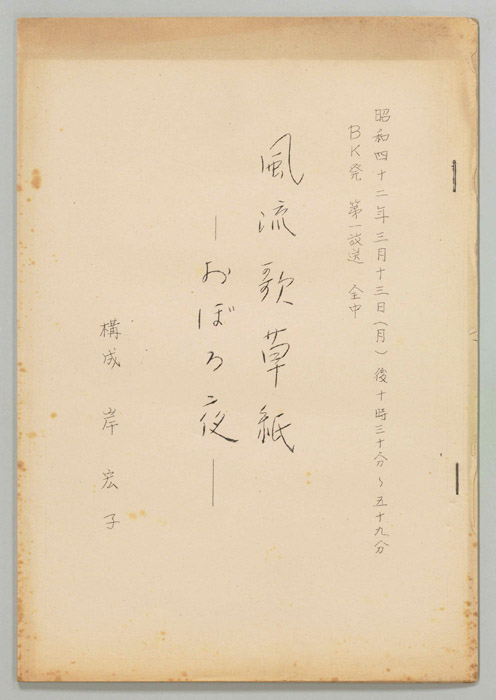 昭和四十二年三月十三日(月) 後十時三十分〜五十九分
BK発 第一放送 全中
風流歌草紙
―おぼろ夜―
構成 岸宏子